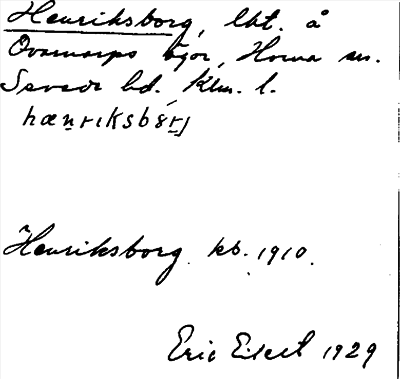 Henriksborg, lht. å
Övarvarps ägor, Horna sn.
Sevede hd. Klm. l.
hæn̲rıksbȣr̲j
Henriksborg kb. 1910.
Eric Elert 1929